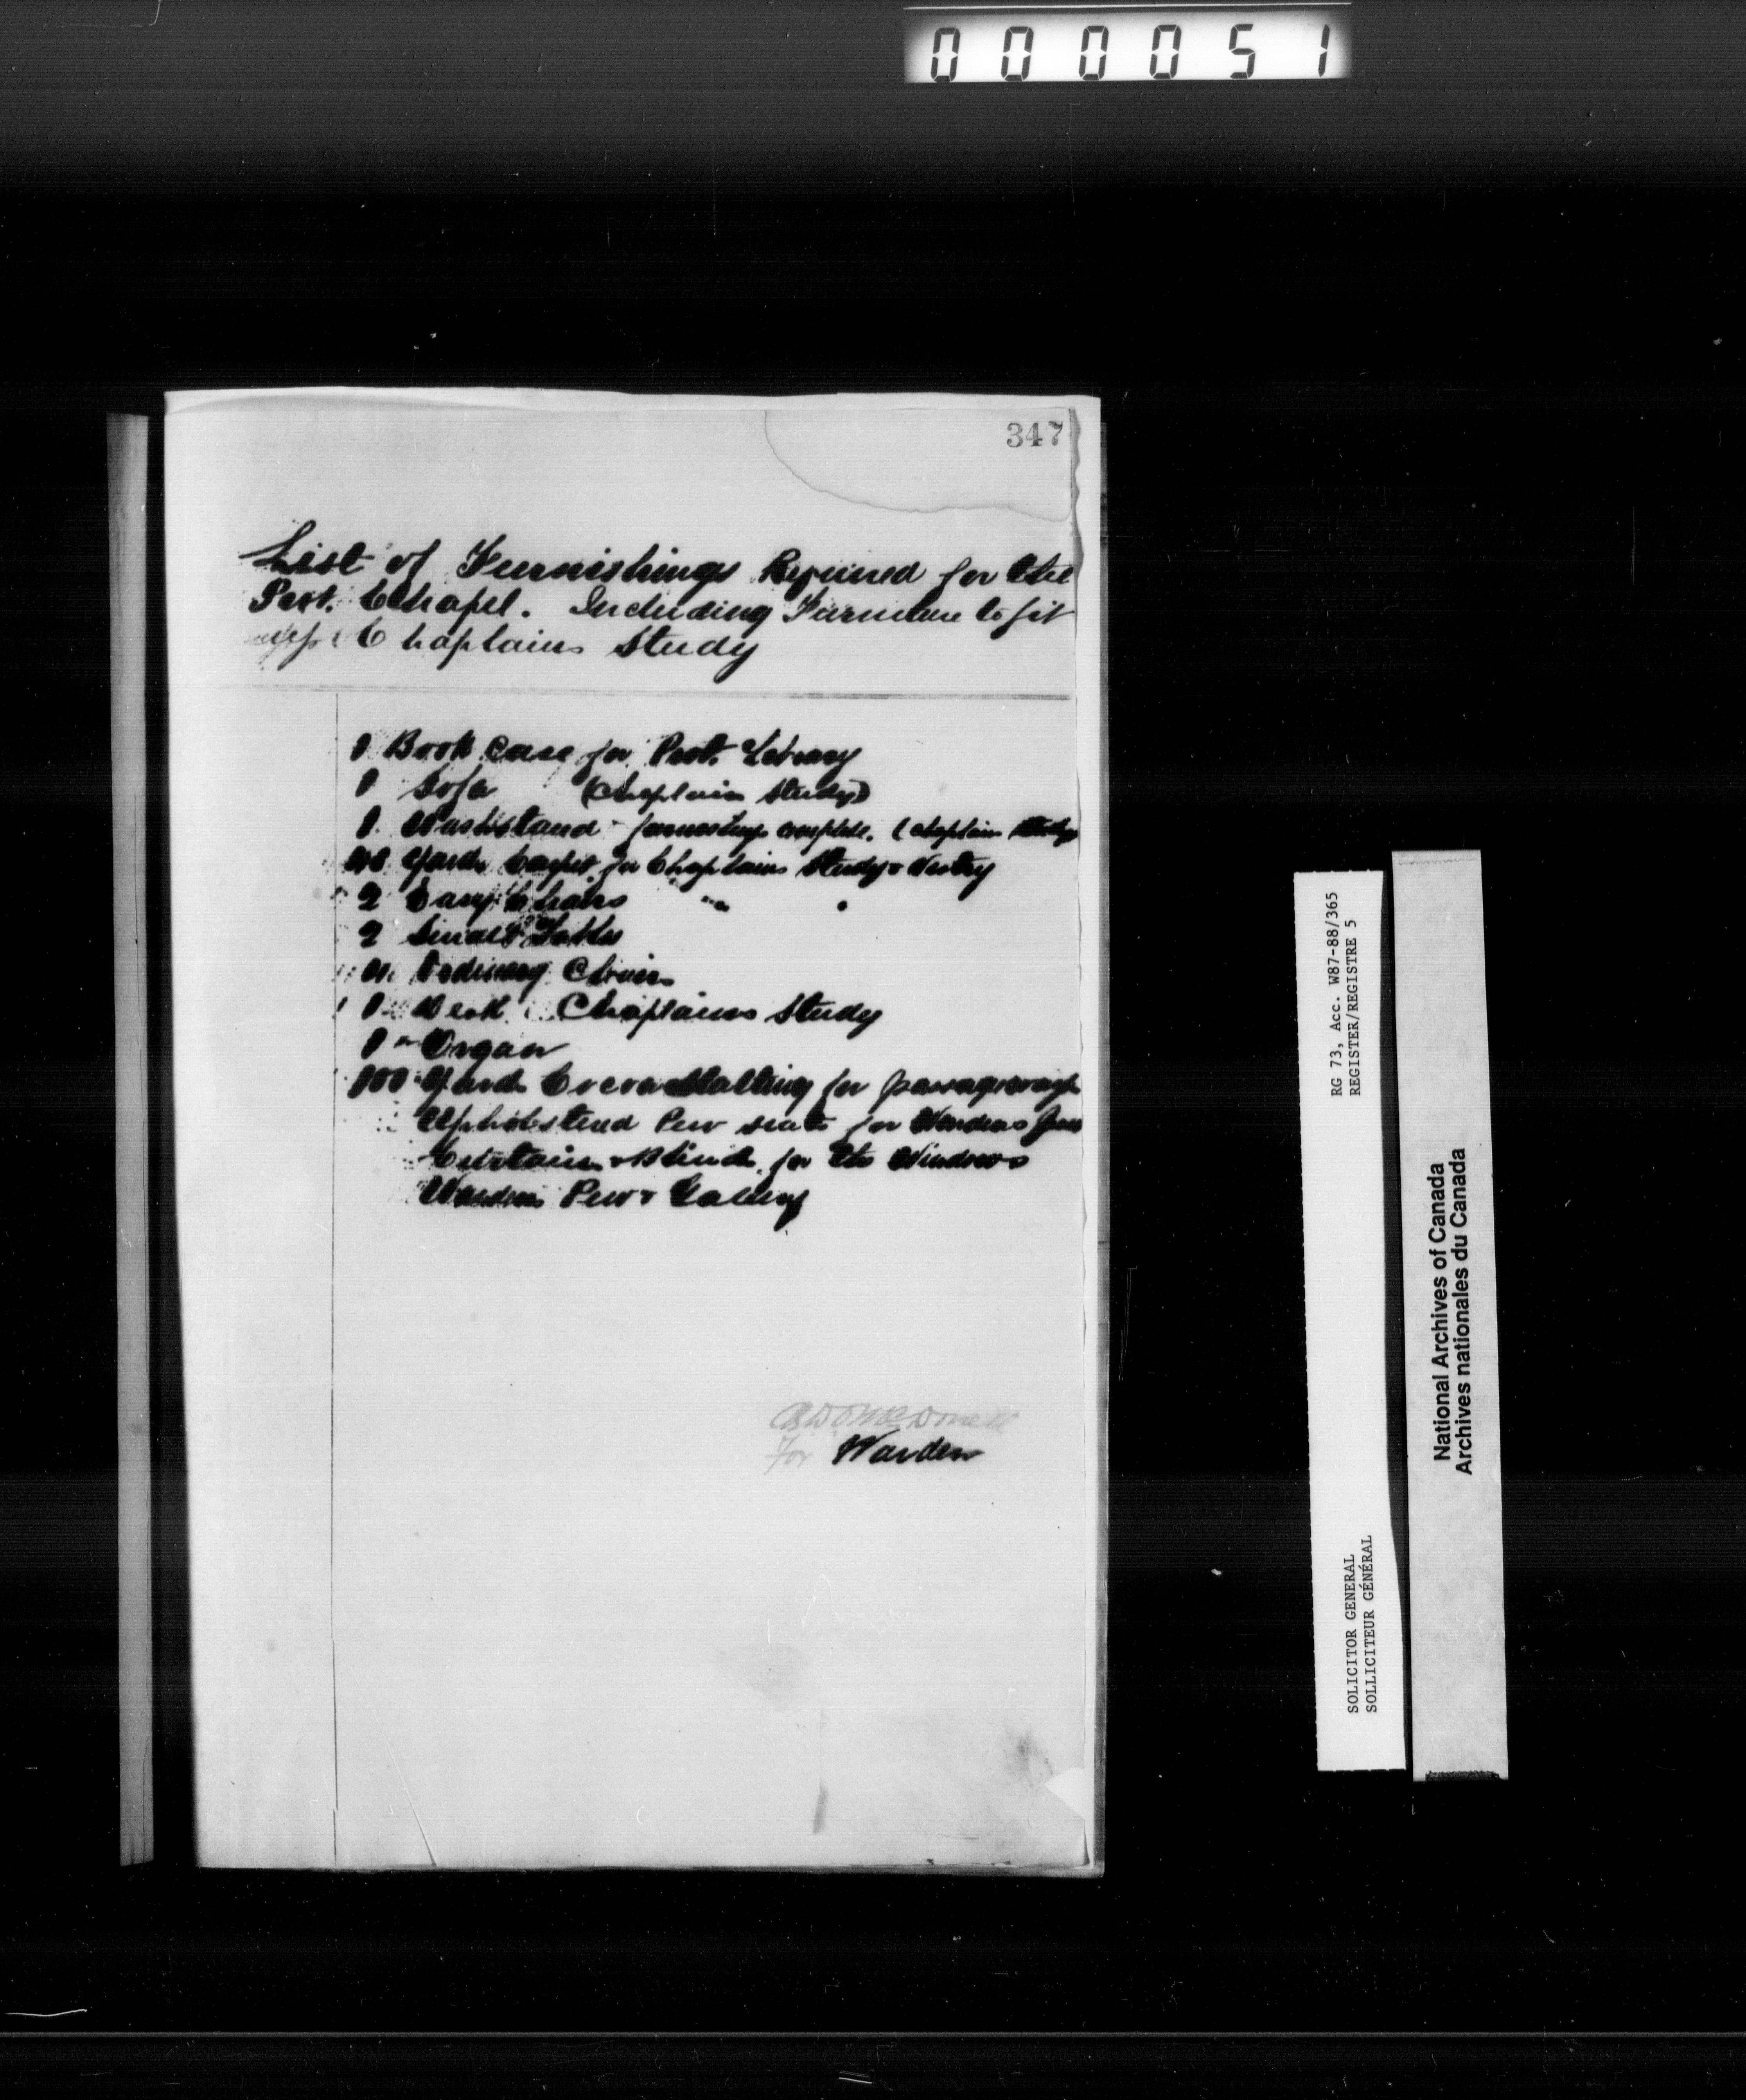 000051
347
List of Furnishings Required for the
Prot. Chapel. Including Furniture to fit
up Chaplains Study
1 Book case for Prot. Library
1 Sofa (Chaplain Study)
1 Washstand - furnishings complete. (Chaplain Study
Yards Carpet for Chaplains Study & Vestry
2 Easy Chairs " "
2 Small Tables
Ordinary Chairs
1 Desk Chaplains Study
1 " Organ
100 Yards Cocoa Matting for passageways
Upholstered Pew seats for Wardens Pew
Curtains & Blinds for the Windows
Wardens Pew & Gallery
For Warden
RG 73, Acc. W87-88/365
REGISTER/REGISTRE 5
SOLICITOR GENERAL
SOLLICITEUR GÉNÉRAL
National Archives of Canada
Archives nationales du Canada